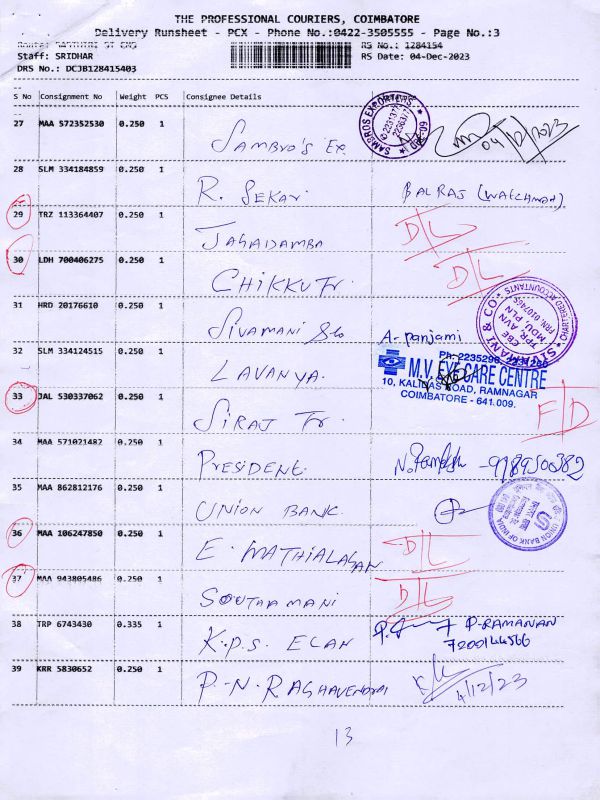 THE PROFESSIONAL COURIERS, COIMBATORE
Delivery Runsheet - PCX - Phone No.:0422-3505555 - Page No.:3
RS No.: 1284154
Staff: SRIDHAR RS Date: 04-Dec-2023
DRS No.: DCJB128415403
S No Consignment No Weight PCS Consignee Details
27 MAA 572352530 0.250 1 Sambro's Ex. SAMBROS EXPORTERS 04/12/2023
28 SLM 334184859 0.250 1 R. Sekar BALRAJ (WATCHMAN)
29 TRZ 113364407 0.250 1 JAGADAMBA D/L
30 LDH 700406275 0.250 1 CHIKKU Tr. D/L
31 HRD 20176610 0.250 1 SIVAMANI &co A- panjami
SIVMANI & CO
CHARTERED ACCOUNTANTS
FRN. 010746S
MDU, PLN
TPR, AVN
CBE
32 SLM 334124515 0.250 1 LAVANYA.
M.V. EYE CARE CENTRE
10, KALIDAS ROAD, RAMNAGAR
COIMBATORE - 641 009.
33 JAL 530337062 0.250 1 SIRAJ Tr. F/D
34 MAA 571021482 0.250 1 PRESIDENT
35 MAA 862812176 0.250 1 UNION BANK UNION BANK OF INDIA
36 MAA 106247850 0.250 1 E. MATHIALAGAN D/L
37 MAA 943805486 0.250 1 D/L
38 TRP 6743430 0.335 1 K.P.S. ELAN P-RAMANAN
7200144566
39 KRR 5830652 0.250 1 P.N. RAGHAVENDRA 4/12/23
13